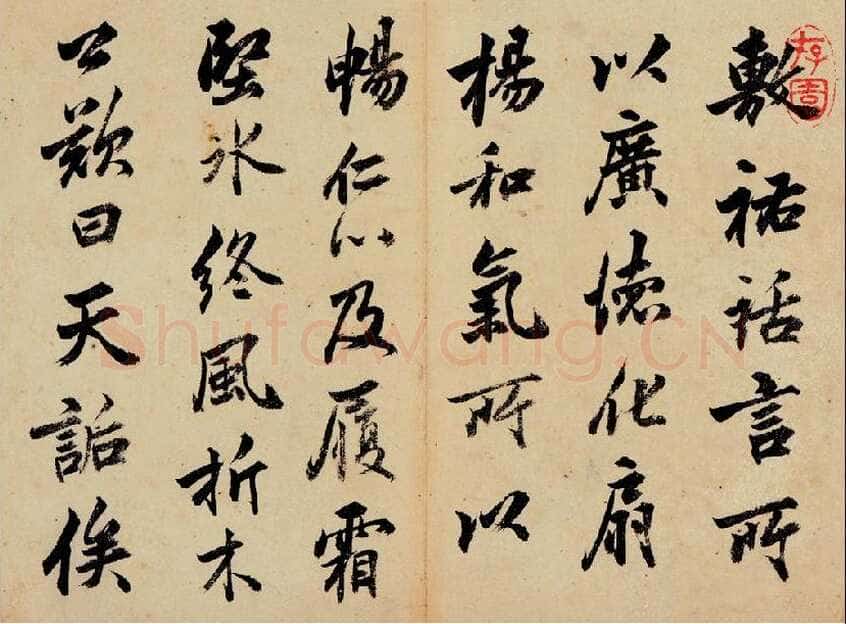 敷祐話言所
以廣德化扇
楊和氣所以
暢仁心及履霜
堅氷終風折木
公歎曰天詬俟
Shufawang.CN